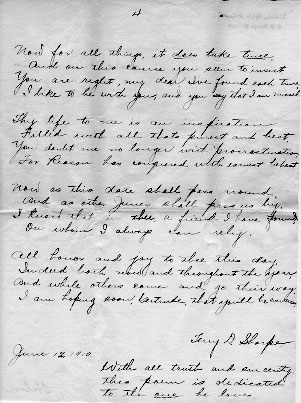 4
Now for all things, it does take time,
And on this course you seem to insist
You are right, my dear I've found each time,
I like to be with you, and you say that I am
Thy life to me is an inspiration
Filled with all thats purest and best
You doubt me no longer with procrastination,
For Reason has conquered with earnest
Now as this date shall pass round,
And as other Junes shall pass us by,
I know that in thee a friend I have found,
On whom I always can rely.
All honor and joy to thee this day
Indeed both now and throughout the years
And while others come and go their way
I am hoping soon, Gertrude, that you'll be
Terry D. Sharpe
June 12, 1910
With all truth and sincerity
this poem is dedicated
to the one he loves.